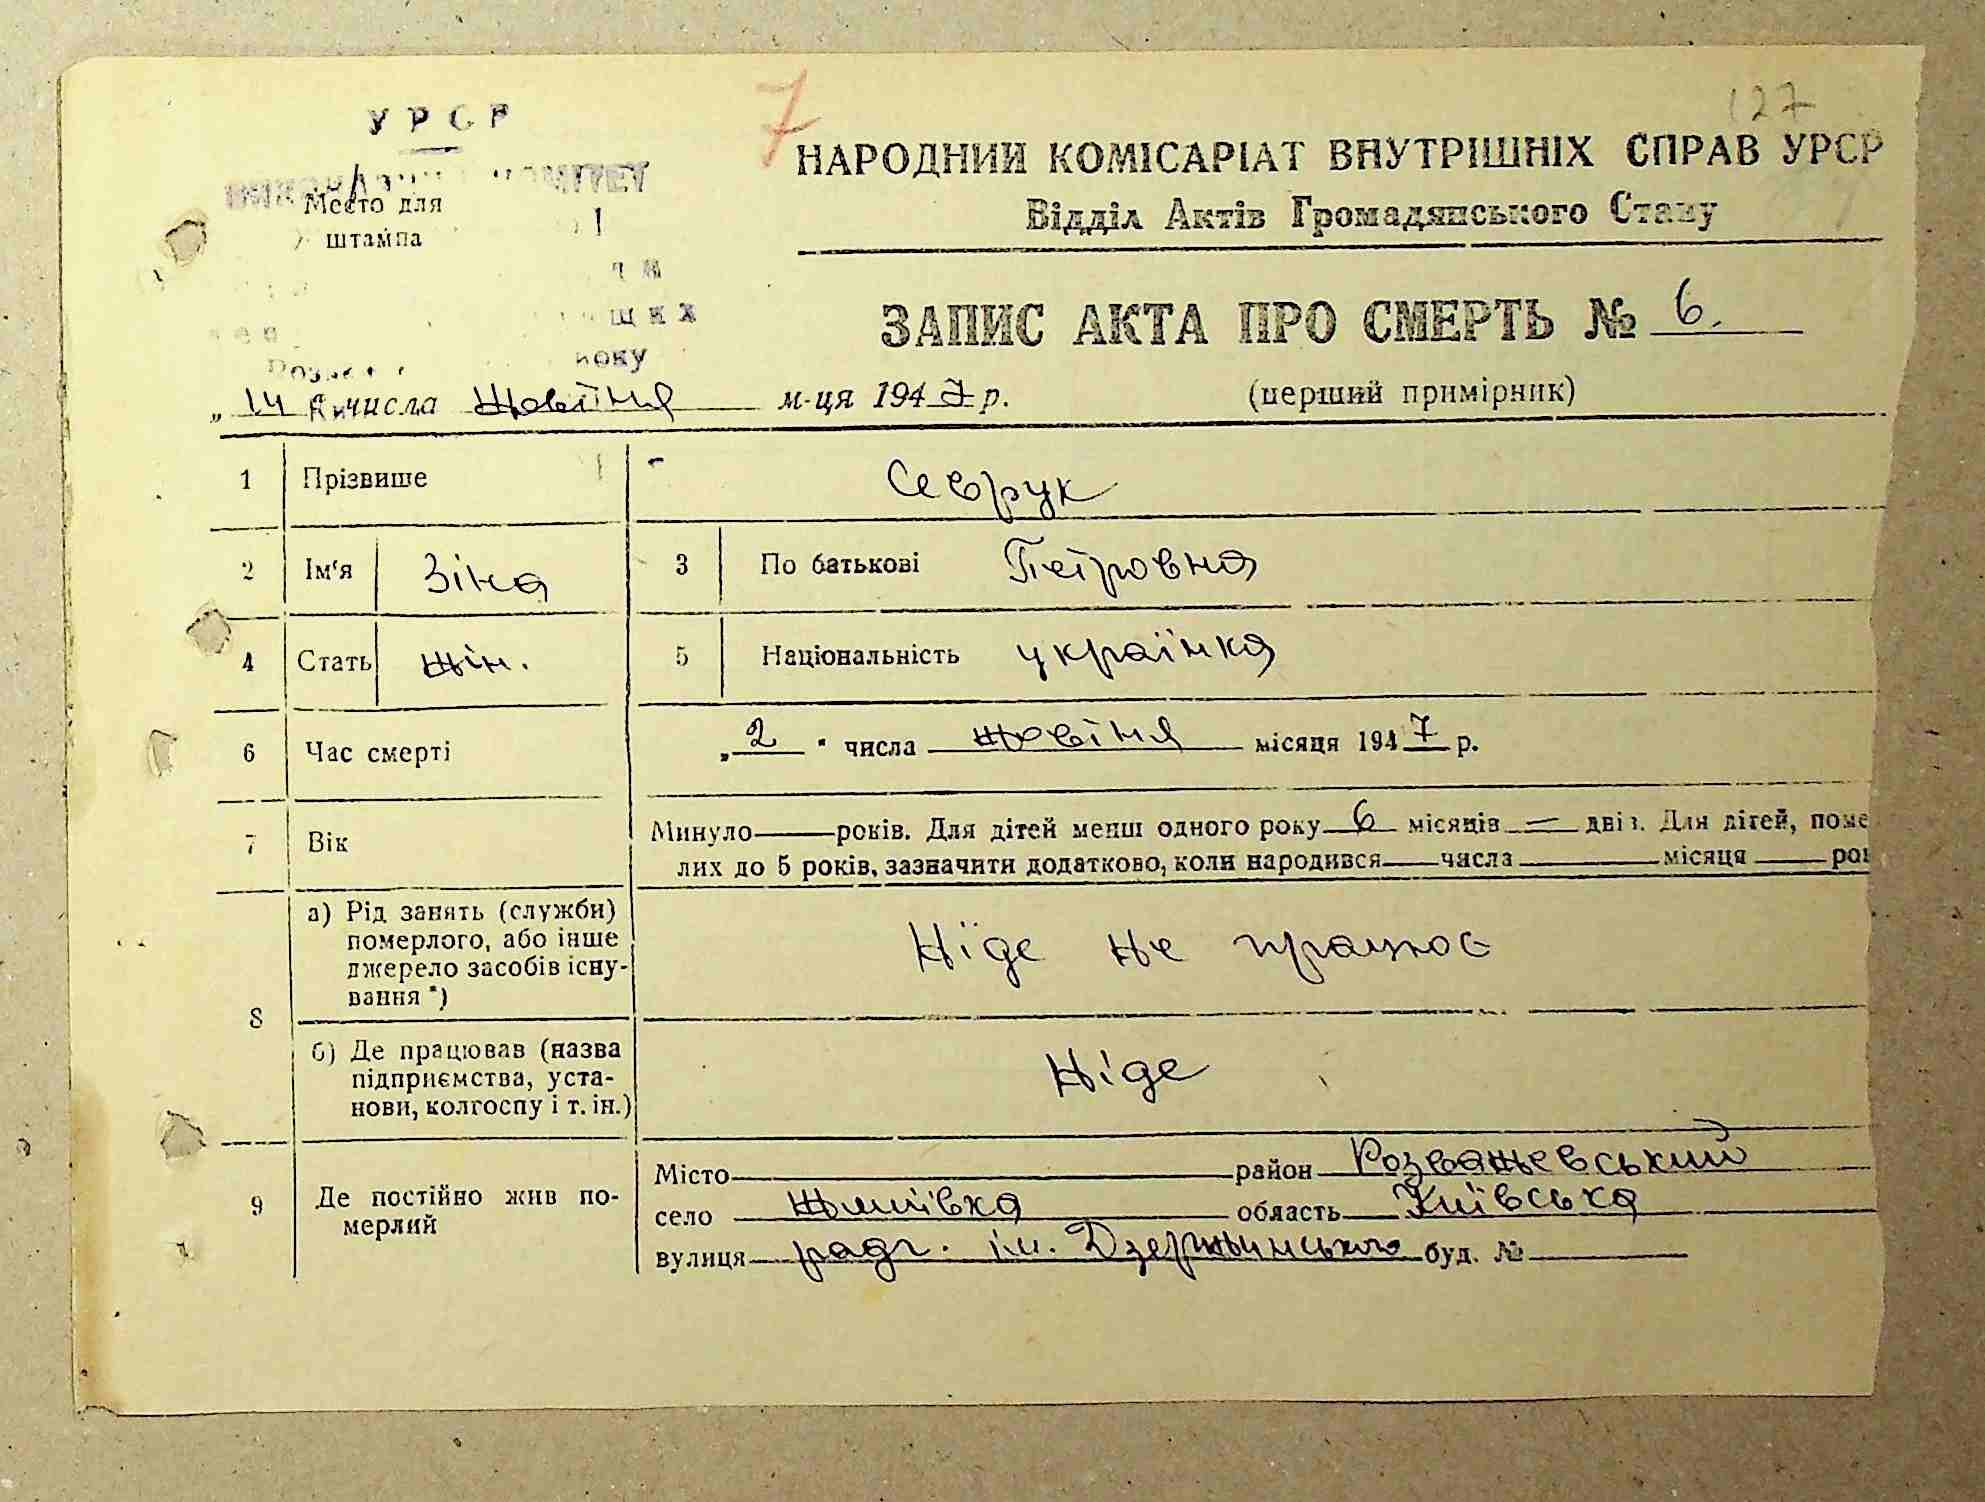 УРСР
7
127
НАРОДНИЙ КОМІСАРІАТ ВНУТРІШНІХ СПРАВ УРСР
КОМІТЕТ
Место для
штампа
Відділ Актів Громадянського Стану
ЗАПИС АКТА ПРО СМЕРТЬ № 6.
„ 14 числа Жовтня м-ця 1947 р.
(перший примірник)
1 Прізвище Севрук
2 Ім'я Зіна 3 По батькові Петровна
4 Стать жін. 5 Національність українка
6 Час смерті „ 2 " числа жовтня місяця 1947 р.
7 Вік Минуло — років. Для дітей менш одного року 6 місяців — днів. Для дітей, поме
лих до 5 років, зазначити додатково, коли народився — числа місяця
8 а) Рід занять (служби)
померлого, або інше
джерело засобів існу-
вання *)
Ніде не працює
б) Де працював (назва
підприємства, уста-
нови, колгоспу і т. ін.)
Ніде
9 Де постійно жив по-
мерлий
Місто район Розважевський
село область Київська
вулиця радг. ім. Дзержинського буд. №